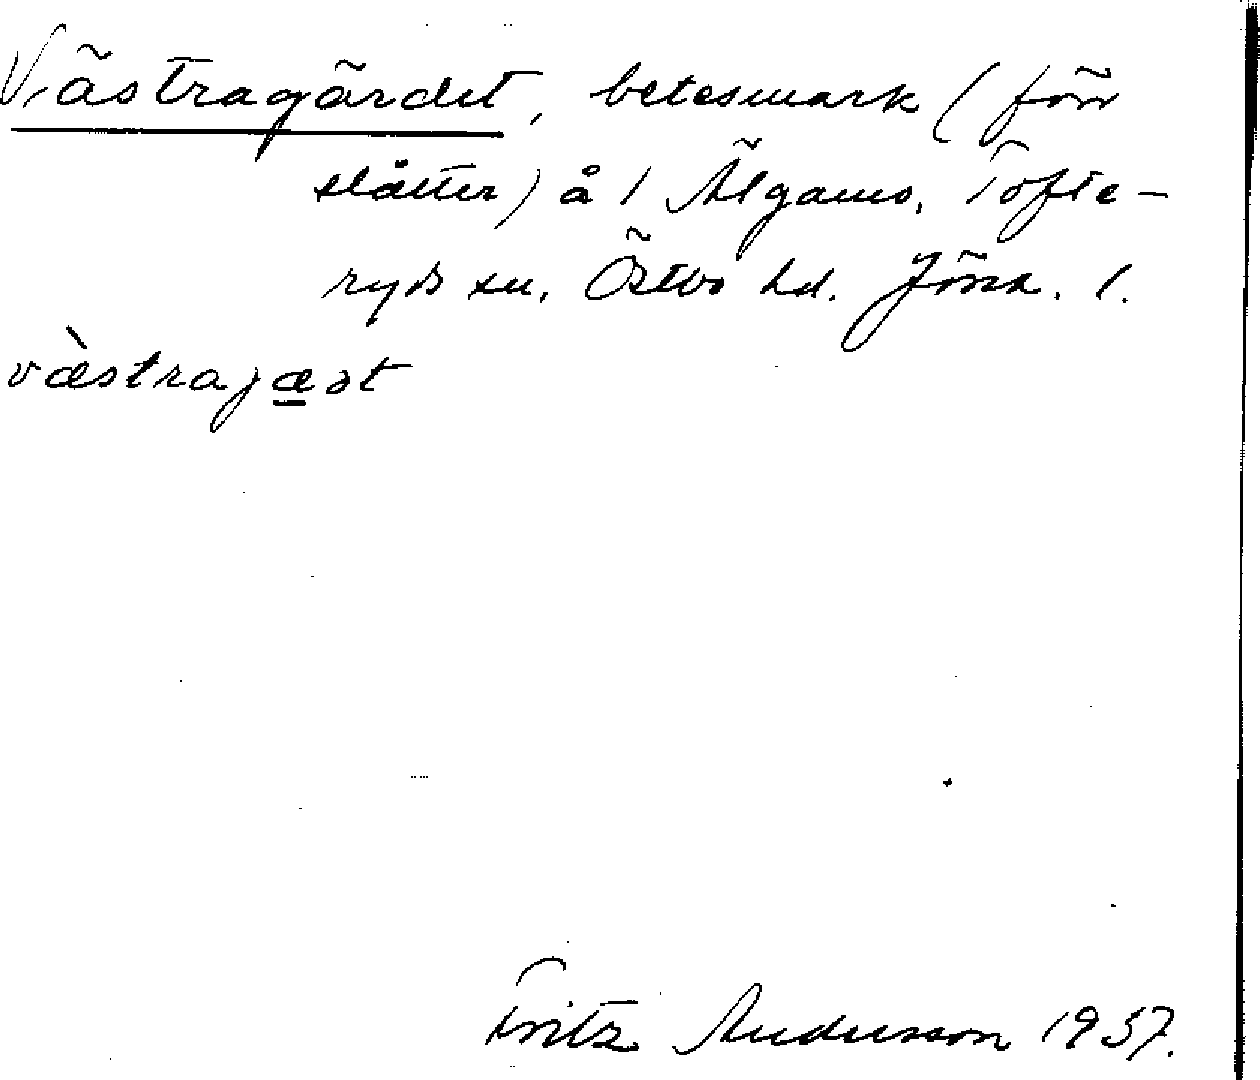 Västragärdet, betesmark (förr
slåtter) å 1 Älganäs, Tofte-
ryds sn. Östbo hd. Jönk. l.
västrajæət
Fritz Andersson 1937.